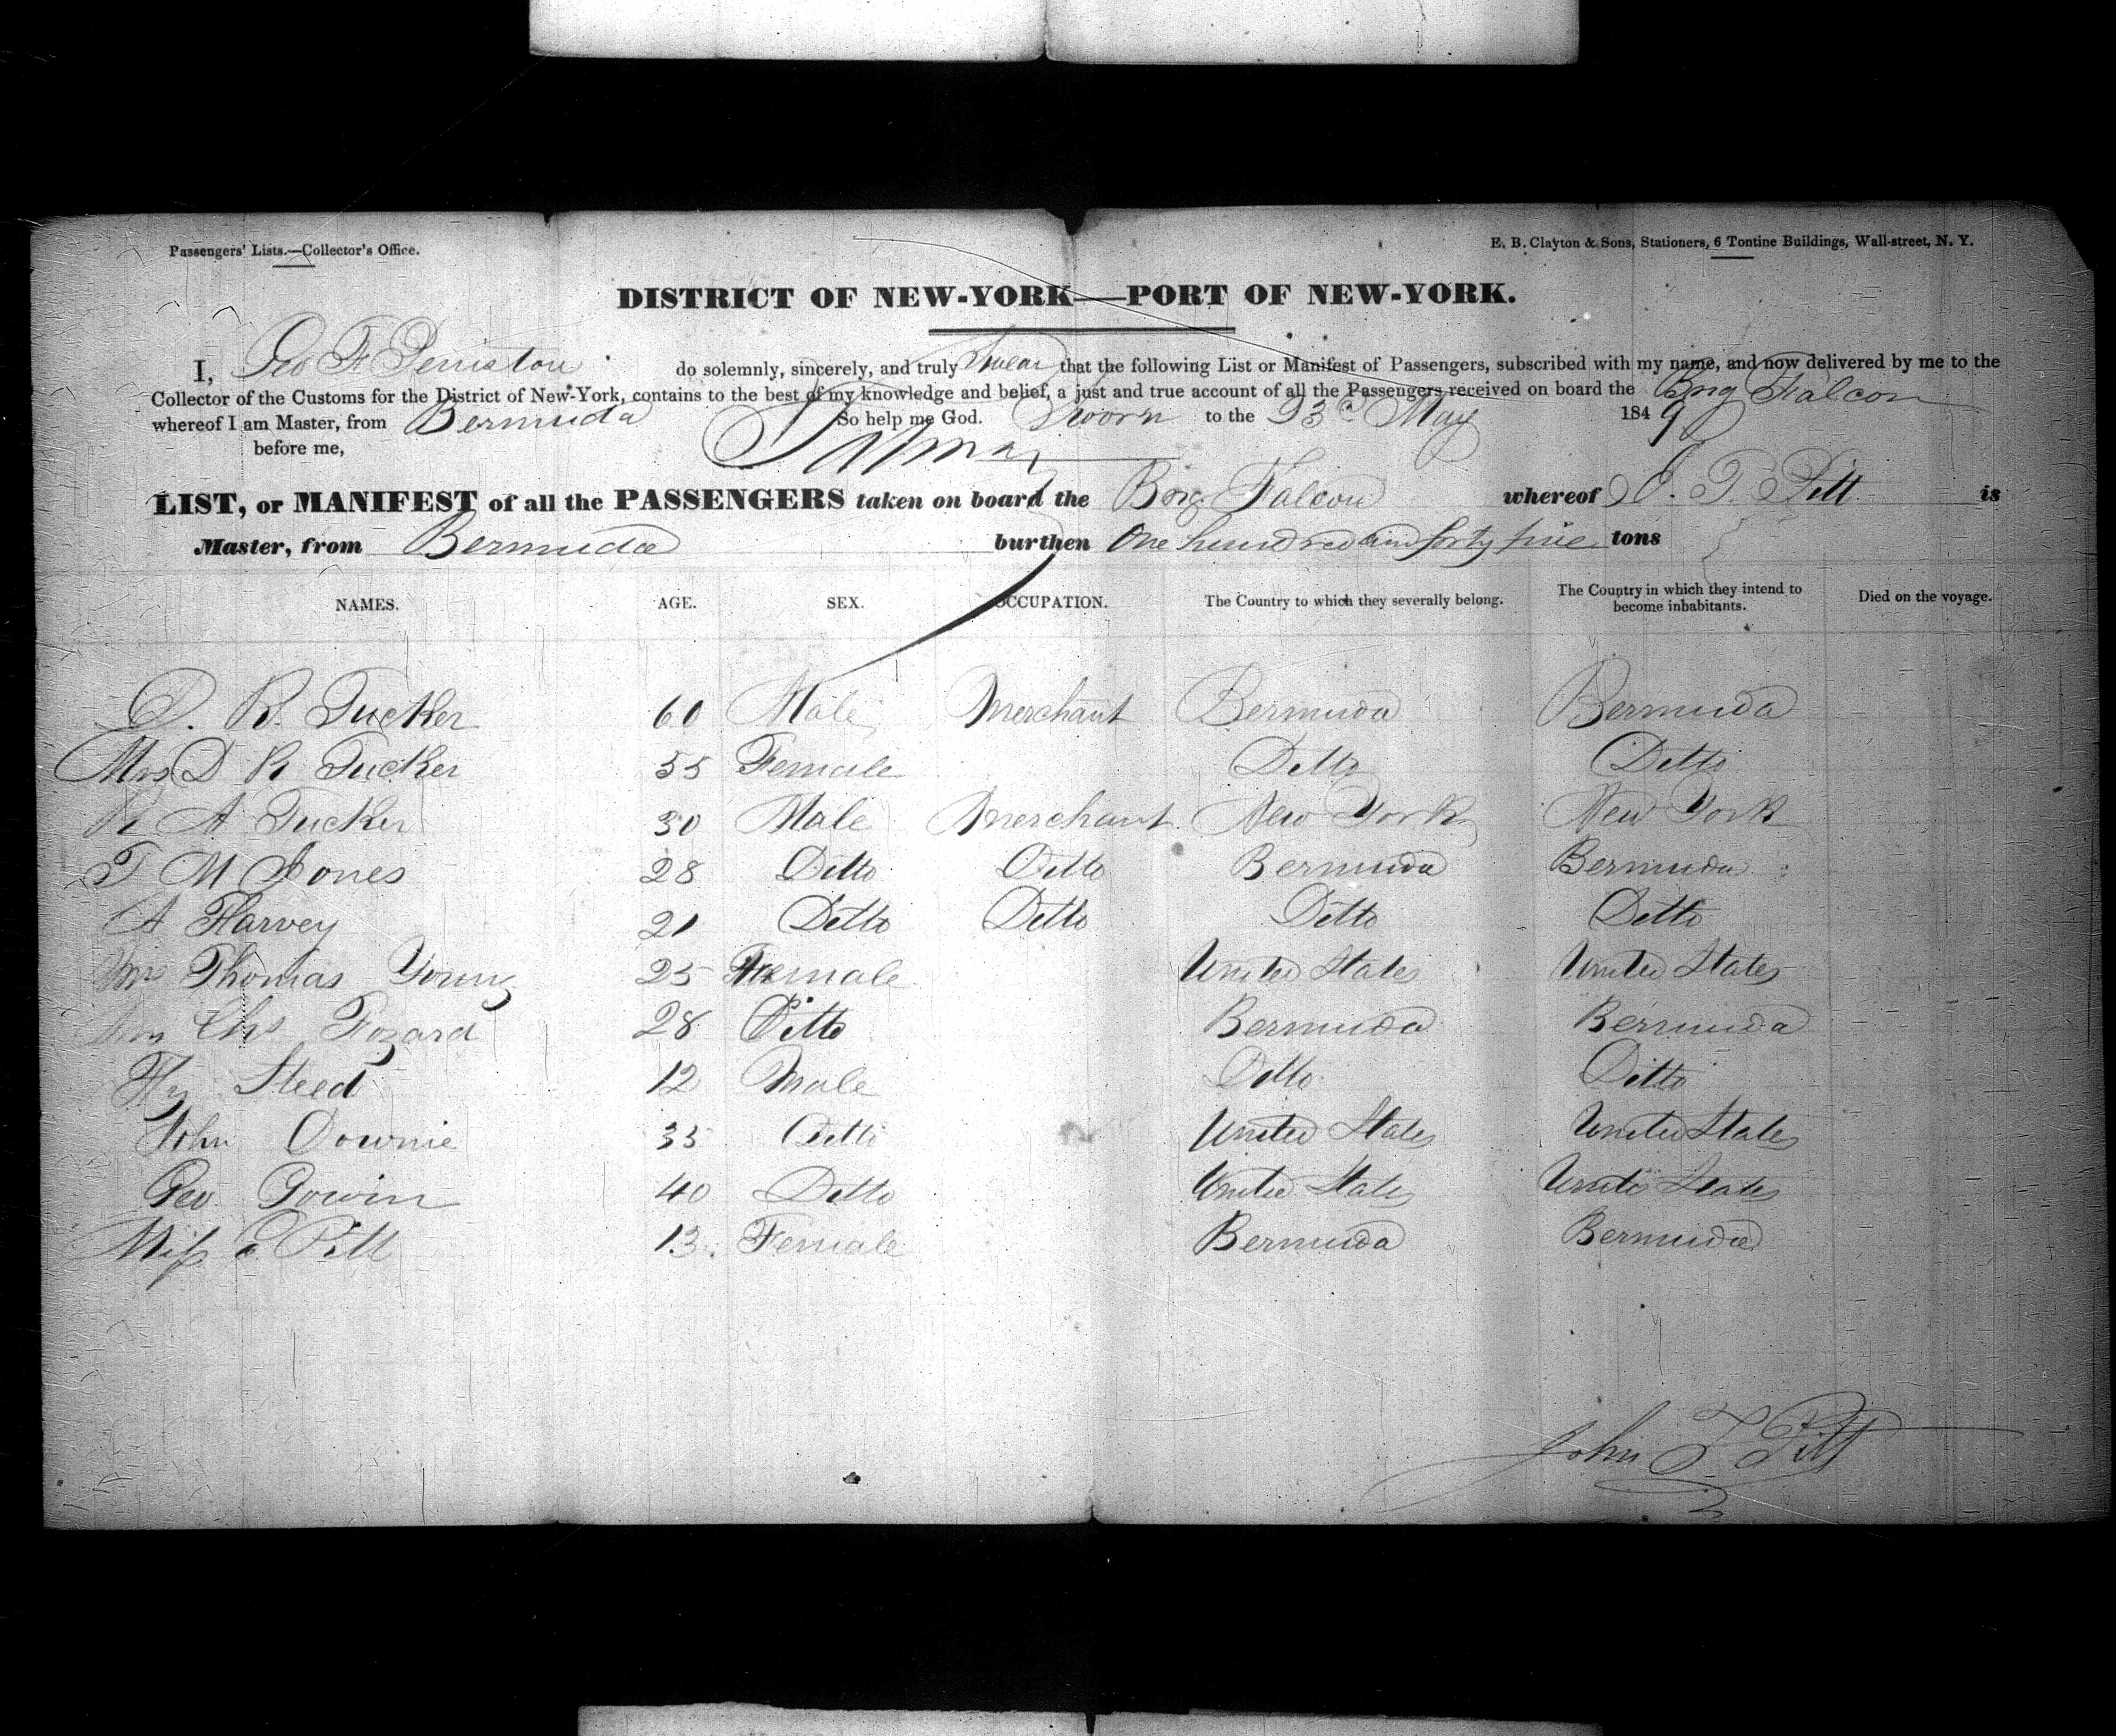 Passengers' Lists.—Collector's Office.
E. B. Clayton & Sons, Stationers, 6 Tontine Buildings, Wall-street, N. Y.
DISTRICT OF NEW-YORK—PORT OF NEW-YORK.
I, Geo F Peniston do solemnly, sincerely, and truly Swear that the following List or Manifest of Passengers, subscribed with my name, and now delivered by me to the
Collector of the Customs for the District of New-York, contains to the best of my knowledge and belief, a just and true account of all the Passengers received on board the Brig Falcon
whereof I am Master, from Bermuda So help me God. Sworn to the 23d May 1849
before me,
LIST, or MANIFEST of all the PASSENGERS taken on board the Brig Falcon whereof J. T. Pitt is
Master, from Bermuda burthen One hundred and forty five tons
NAMES. AGE. SEX. OCCUPATION. The Country to which they severally belong. The Country in which they intend to become inhabitants. Died on the voyage.
D. R. Tucker 60 Male Merchant Bermuda Bermuda
Mrs D R Tucker 55 Female Ditto Ditto
R A Tucker 30 Male Merchant New York New York
T M Jones 28 Ditto Ditto Bermuda Bermuda
A Harvey 21 Ditto Ditto Ditto Ditto
Mrs Thomas Young 25 Female United States United States
Mrs Chs Fozard 28 Ditto Bermuda Bermuda
Hy Steed 12 Male Ditto Ditto
John Downie 35 Ditto United States United States
Geo Gowin 40 Ditto United States United States
Miss E Pitt 13 Female Bermuda Bermuda
John T Pitt